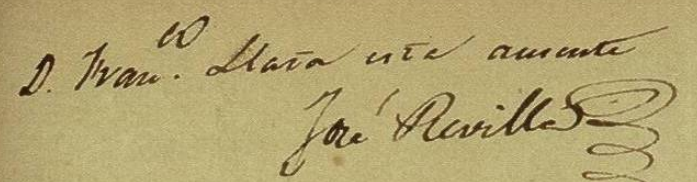 D. Fran.co Llata esta ausente
José Revilla